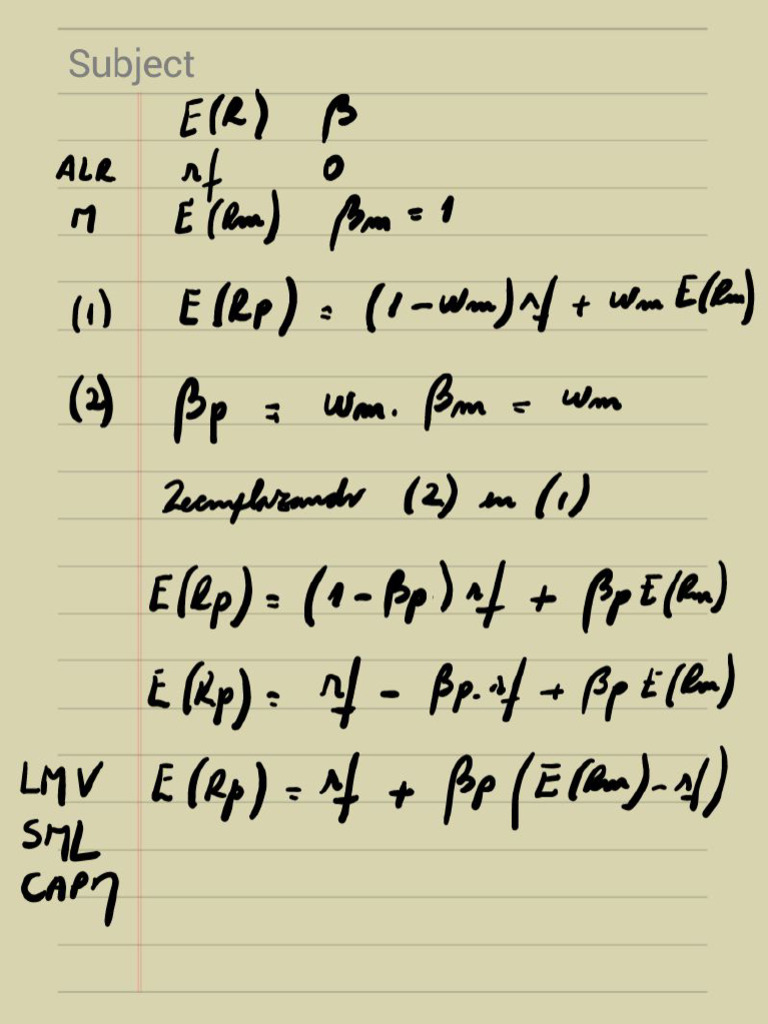 Subject
E(R) β
ALR rf 0
M E(Rm) βm = 1
(1) E(Rp) = (1 - wm) rf + wm E(Rm)
(2) βp = wm. βm = wm
Reemplazando (2) en (1)
E(Rp) = (1 - βp) rf + βp E(Rm)
E(Rp) = rf - βp. rf + βp E(Rm)
LMV E(Rp) = rf + βp (E(Rm) - rf)
SML
CAPM